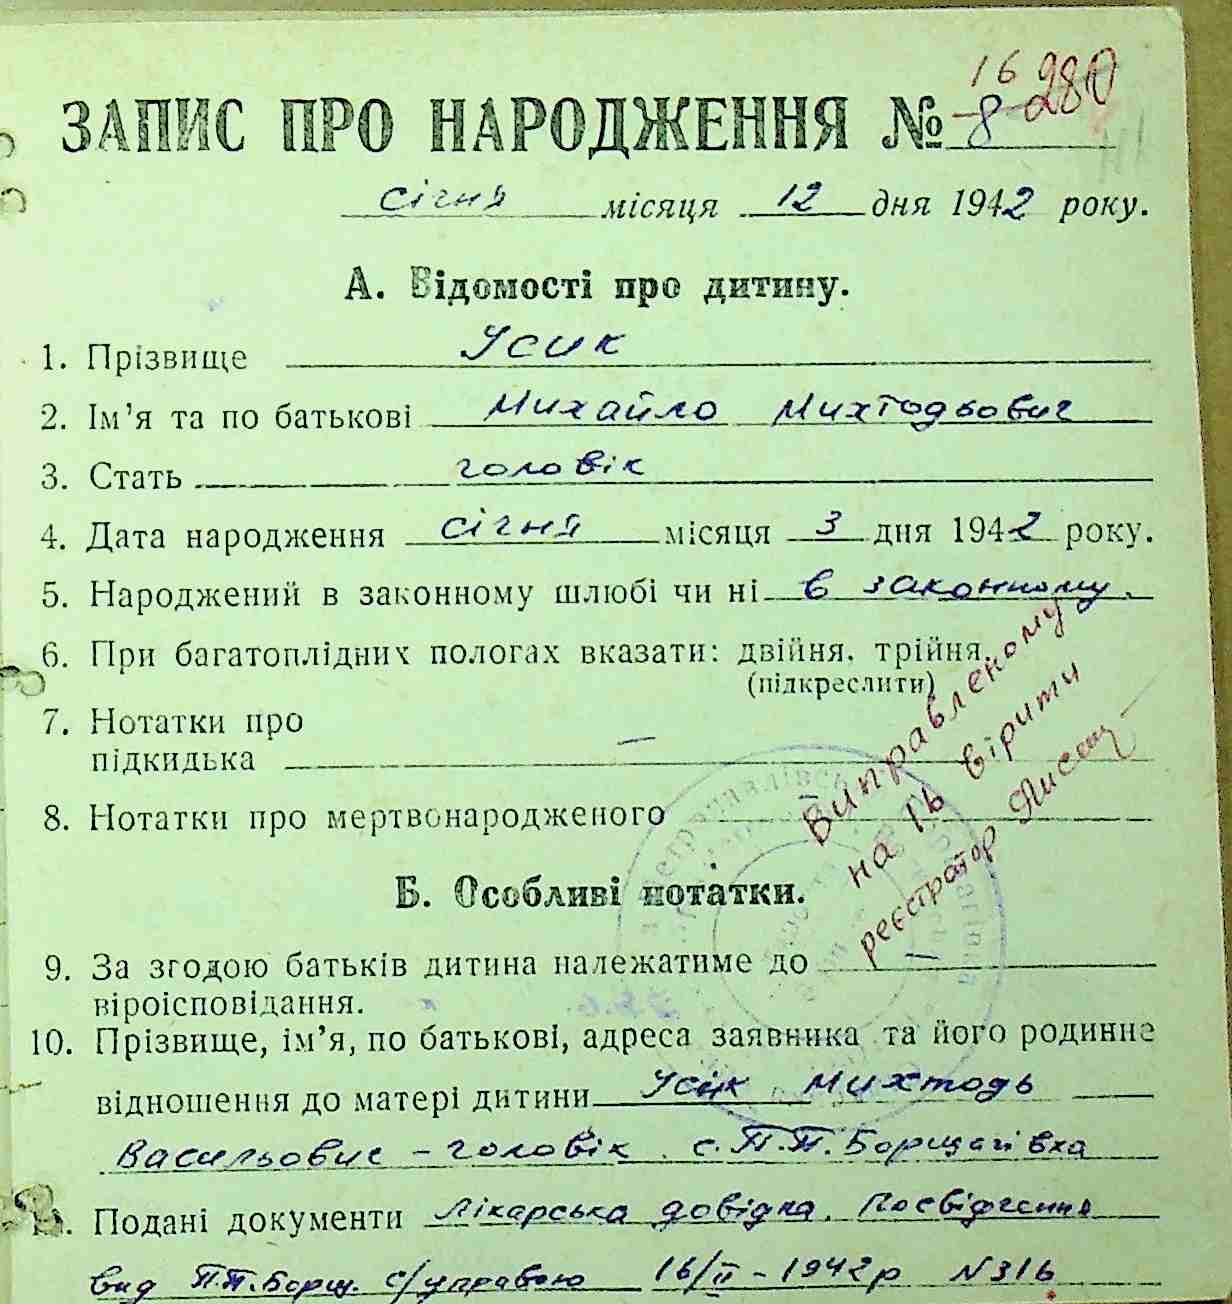 16 280
ЗАПИС ПРО НАРОДЖЕННЯ № 8
січня місяця 12 дня 1942 року.
А. Відомості про дитину.
1. Прізвище Усик
2. Ім'я та по батькові Михайло Михтодьович
3. Стать головік
4. Дата народження січня місяця 3 дня 1942 року.
5. Народжений в законному шлюбі чи ні в законному.
6. При багатоплідних пологах вказати: двійня, трійня.
(підкреслити)
7. Нотатки про
підкидька —
8. Нотатки про мертвонародженого —
Виправленому
на 16 вірити
реєстратор
Б. Особливі нотатки.
9. За згодою батьків дитина належатиме до —
віроісповідання.
10. Прізвище, ім'я, по батькові, адреса заявника та його родинне
відношення до матері дитини Усик Михтодь
Васильович – головік с. П.П. Борщагівка
11. Подані документи Лікарська довідка. Посвідчення
вид П.П. Борщ. с/управою 16/II – 1942 р N 316